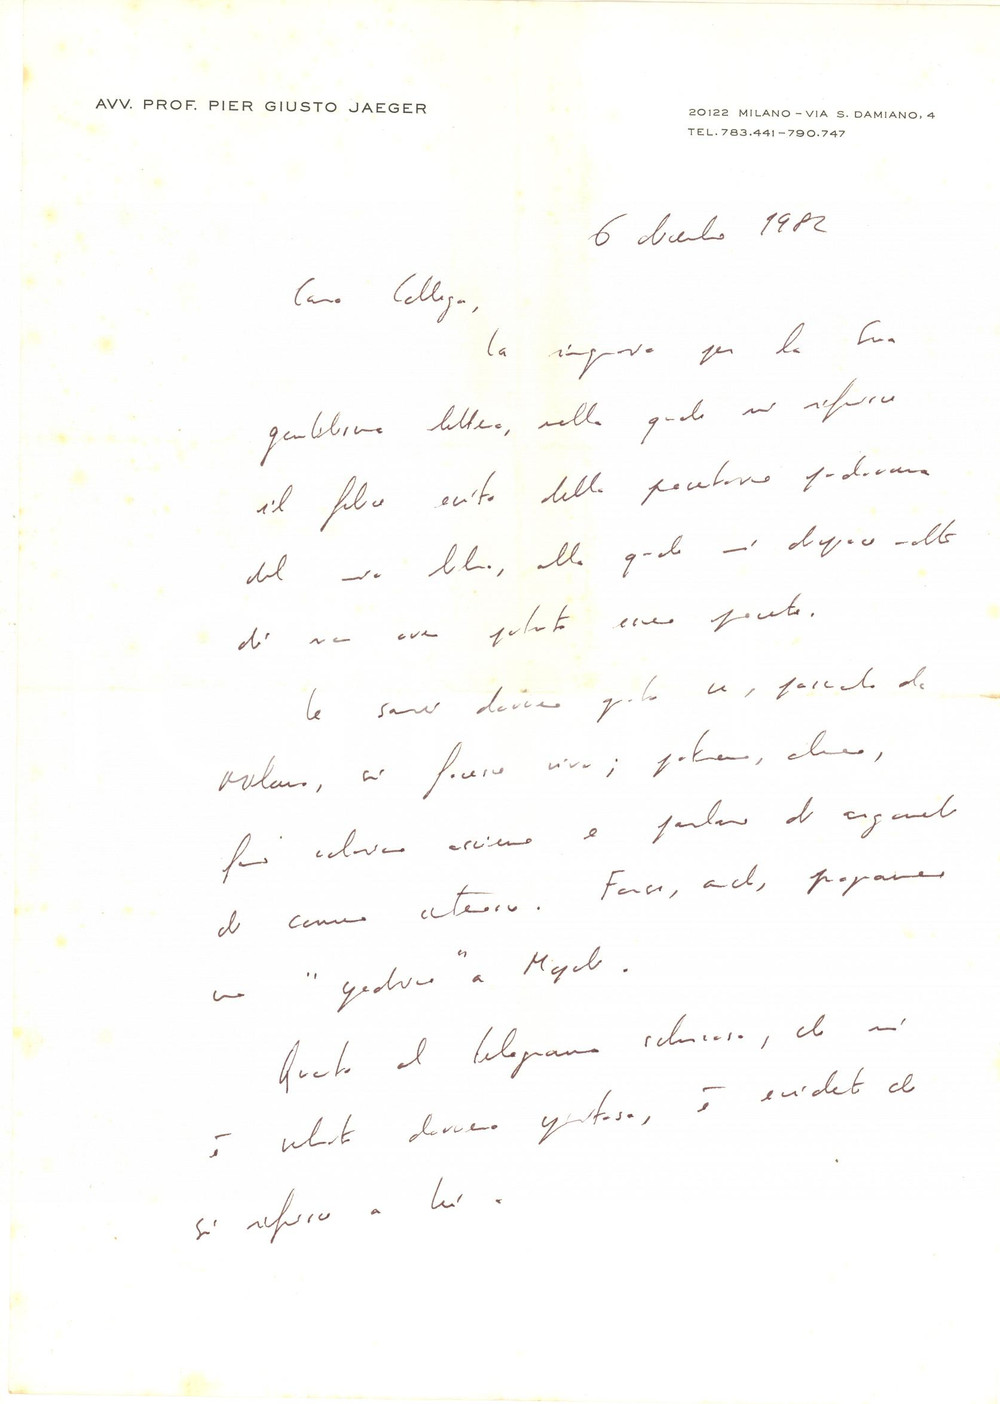 AVV. PROF. PIER GIUSTO JAEGER
20122 MILANO - VIA S. DAMIANO, 4
TEL. 783.441 - 790.747
6 dicembre 1982
Caro Collega,
La ringrazio per la Sua
gentilissima lettera, nella quale mi riferisce
il felice esito della presentazione padovana
del mio libro, alla quale mi dispiace molto
di non aver potuto essere presente.
Le sarei davvero grato se, passando da
Milano, si facesse vivo; potremmo, almeno,
fare colazione assieme e parlare di argomenti
di comune interesse. Forse, anche,
una " " a
Quanto al telegramma scherzoso, che mi
è davvero spiritoso, è evidente che
si riferisce a Lei.